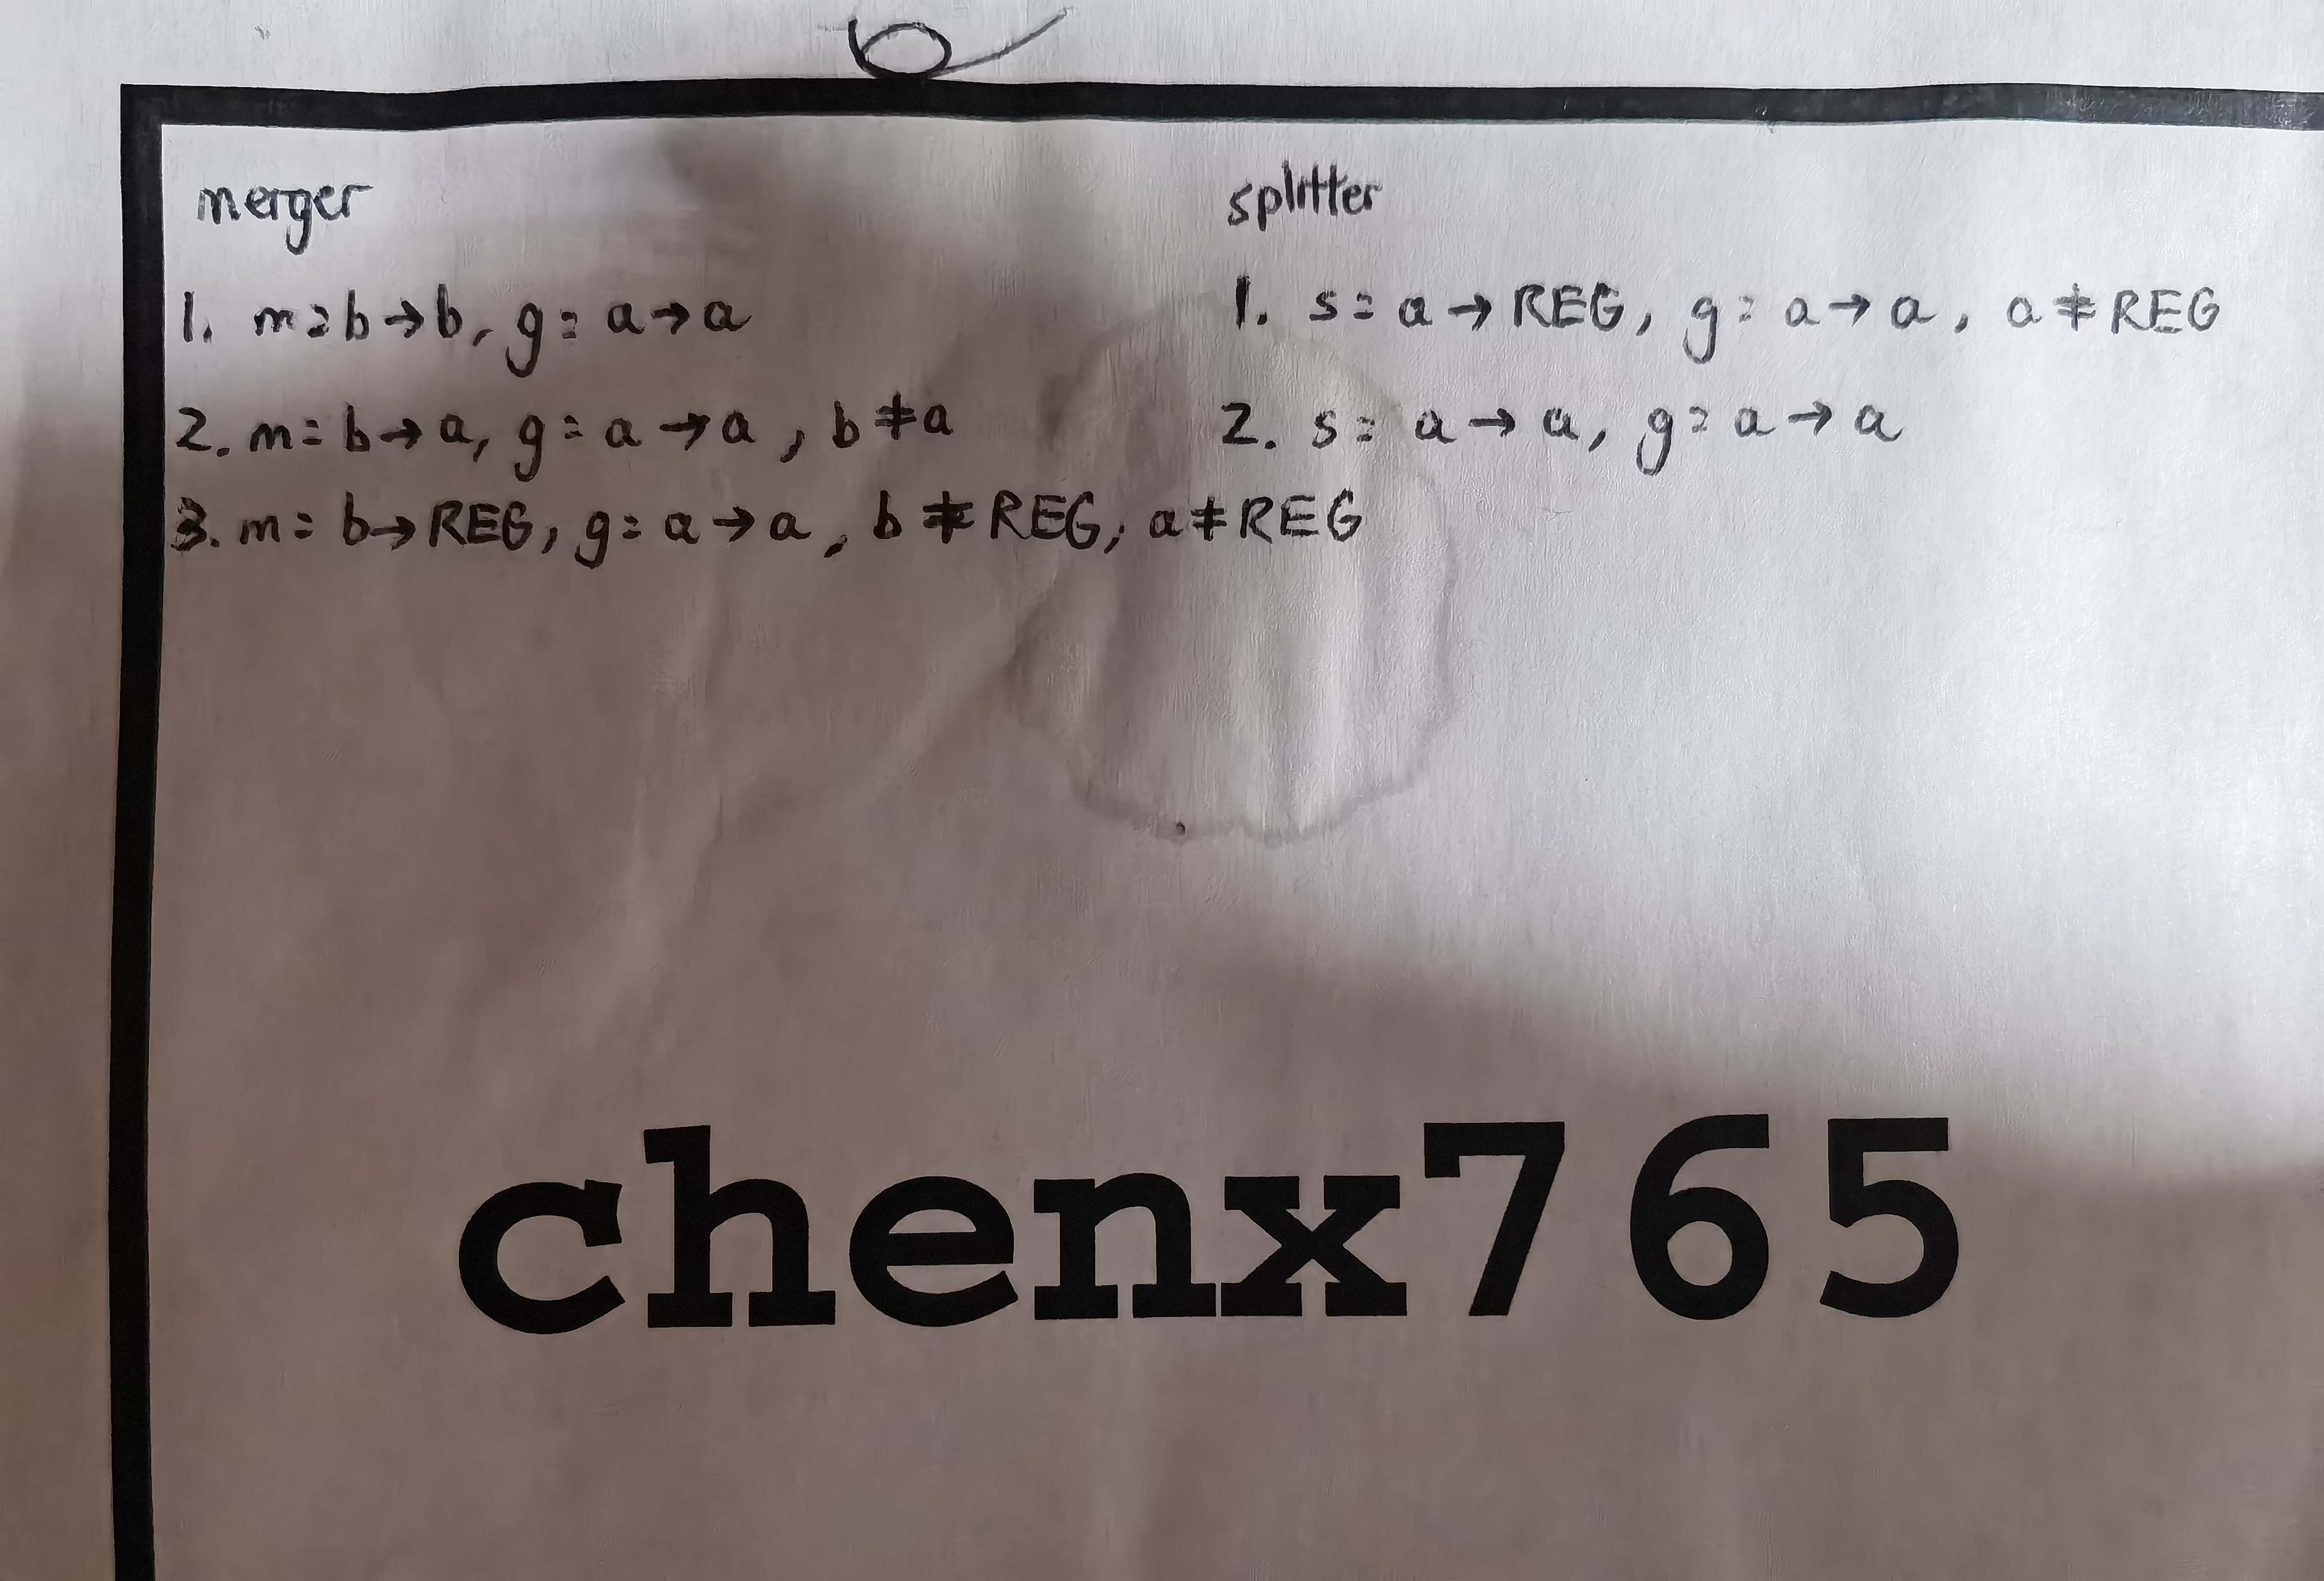 merger
1. m=b→b, g=a→a
2. m=b→a, g=a→a, b≠a
3. m=b→REG, g=a→a, b≠REG, a≠REG
splitter
1. s=a→REG, g=a→a, a≠REG
2. s=a→a, g=a→a
chenx765